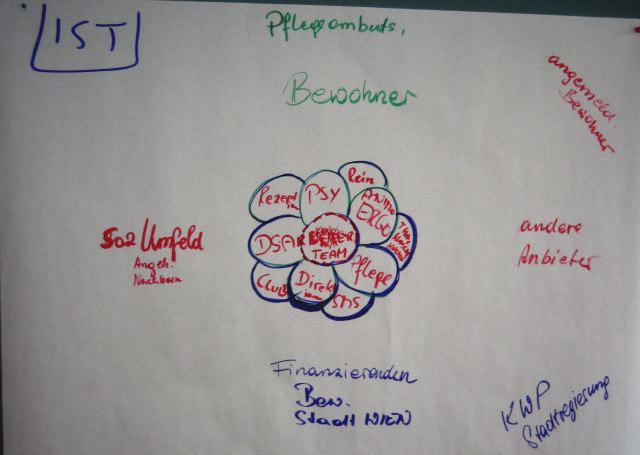 IST
Pflegeombuts,
Bewohner
angemeld.
Bewohner
Rein
Rezept
PSY
ANIM
ERGO
DSA
TEAM
Pflege
Club
Direkt
SMS
Soz Umfeld
Angeh.
Nachbarn
andere
Anbieter
Finanzierenden
Bew.
Stadt WIEN
KWP
Stadtregierung